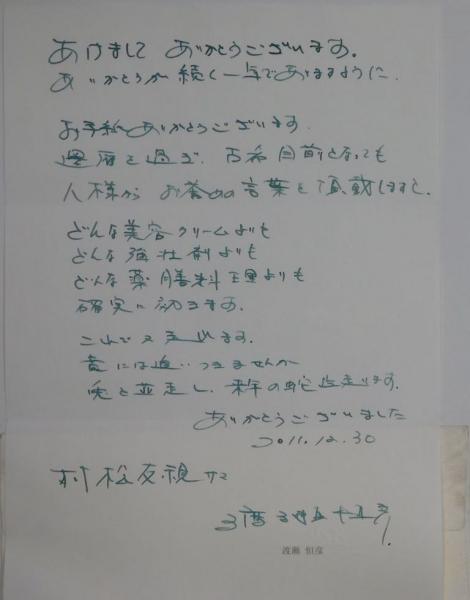 あけまして ありがとうございます。
ありがとうが続く一年でありますように.
お手紙ありがとうございます.
還暦を過ぎ、古希目前となっても
人様から お誉めの言葉を頂戴しますと、
どんな美容クリームよりも
どんな強壮剤よりも
どんな薬膳料理よりも
確実に効きます.
これで又走れます.
竜には追いつきませんが
兎と並走し、来年の蛇迄走ります.
ありがとうございました
2011.12.30
村松友視サマ
渡瀬 恒彦